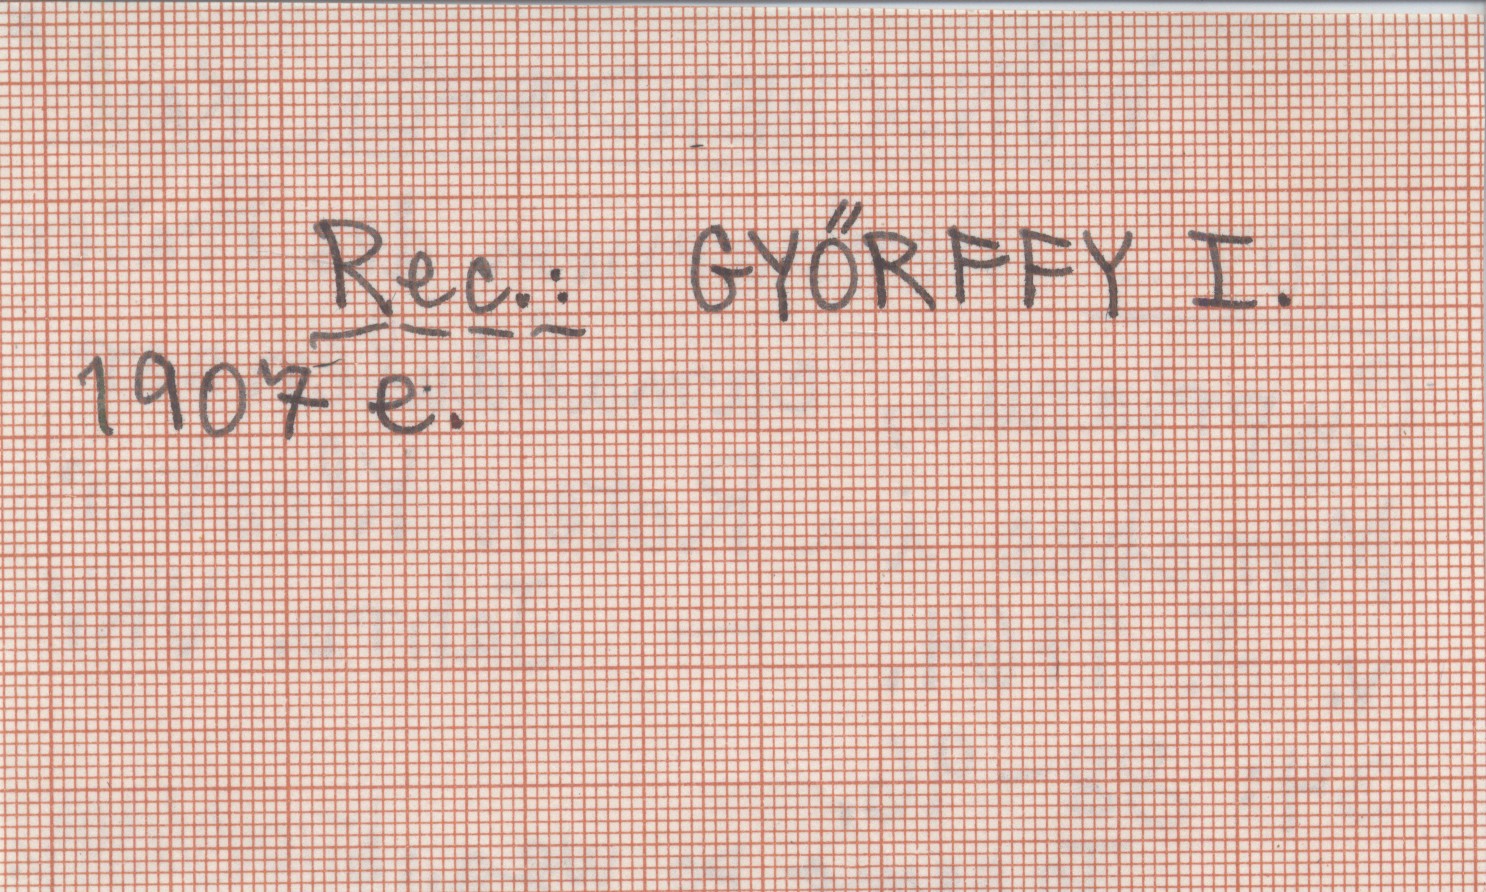 Rec.: GYŐRFFY I.
1907 e.